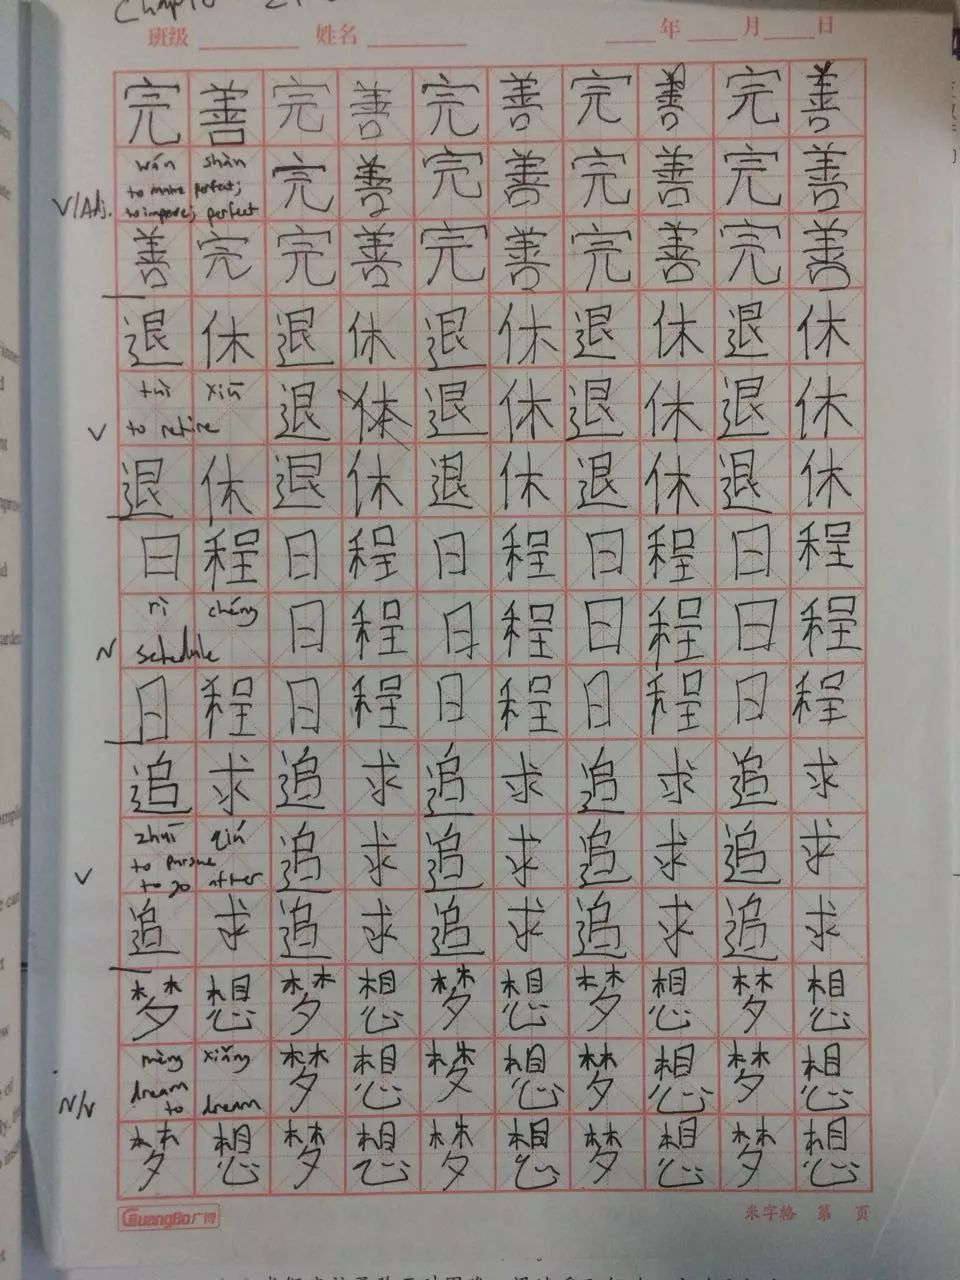 班级 姓名 年 月 日
完善完善完善完善完善
wán shàn 完善完善完善完善
to make perfect;
V/Adj. to improve; perfect
善完完善完善完善完善
退休退休退休退休退休
tuì xiū 退体退休退休退休
V to retire
退休退休退休退休退休
日程日程日程日程日程
rì chéng 日程日程日程日程
N schedule
日程日程日程日程日程
追求追求追求追求追求
zhuī qiú 追求追求追求追求
to pursue
V to go after
追求追求追求追求追求
梦想梦想梦想梦想梦想
mèng xiǎng 梦想梦想梦想梦想
dream
N/V to dream
梦想梦想梦想梦想梦想
GuangBo广博 米字格 第 页